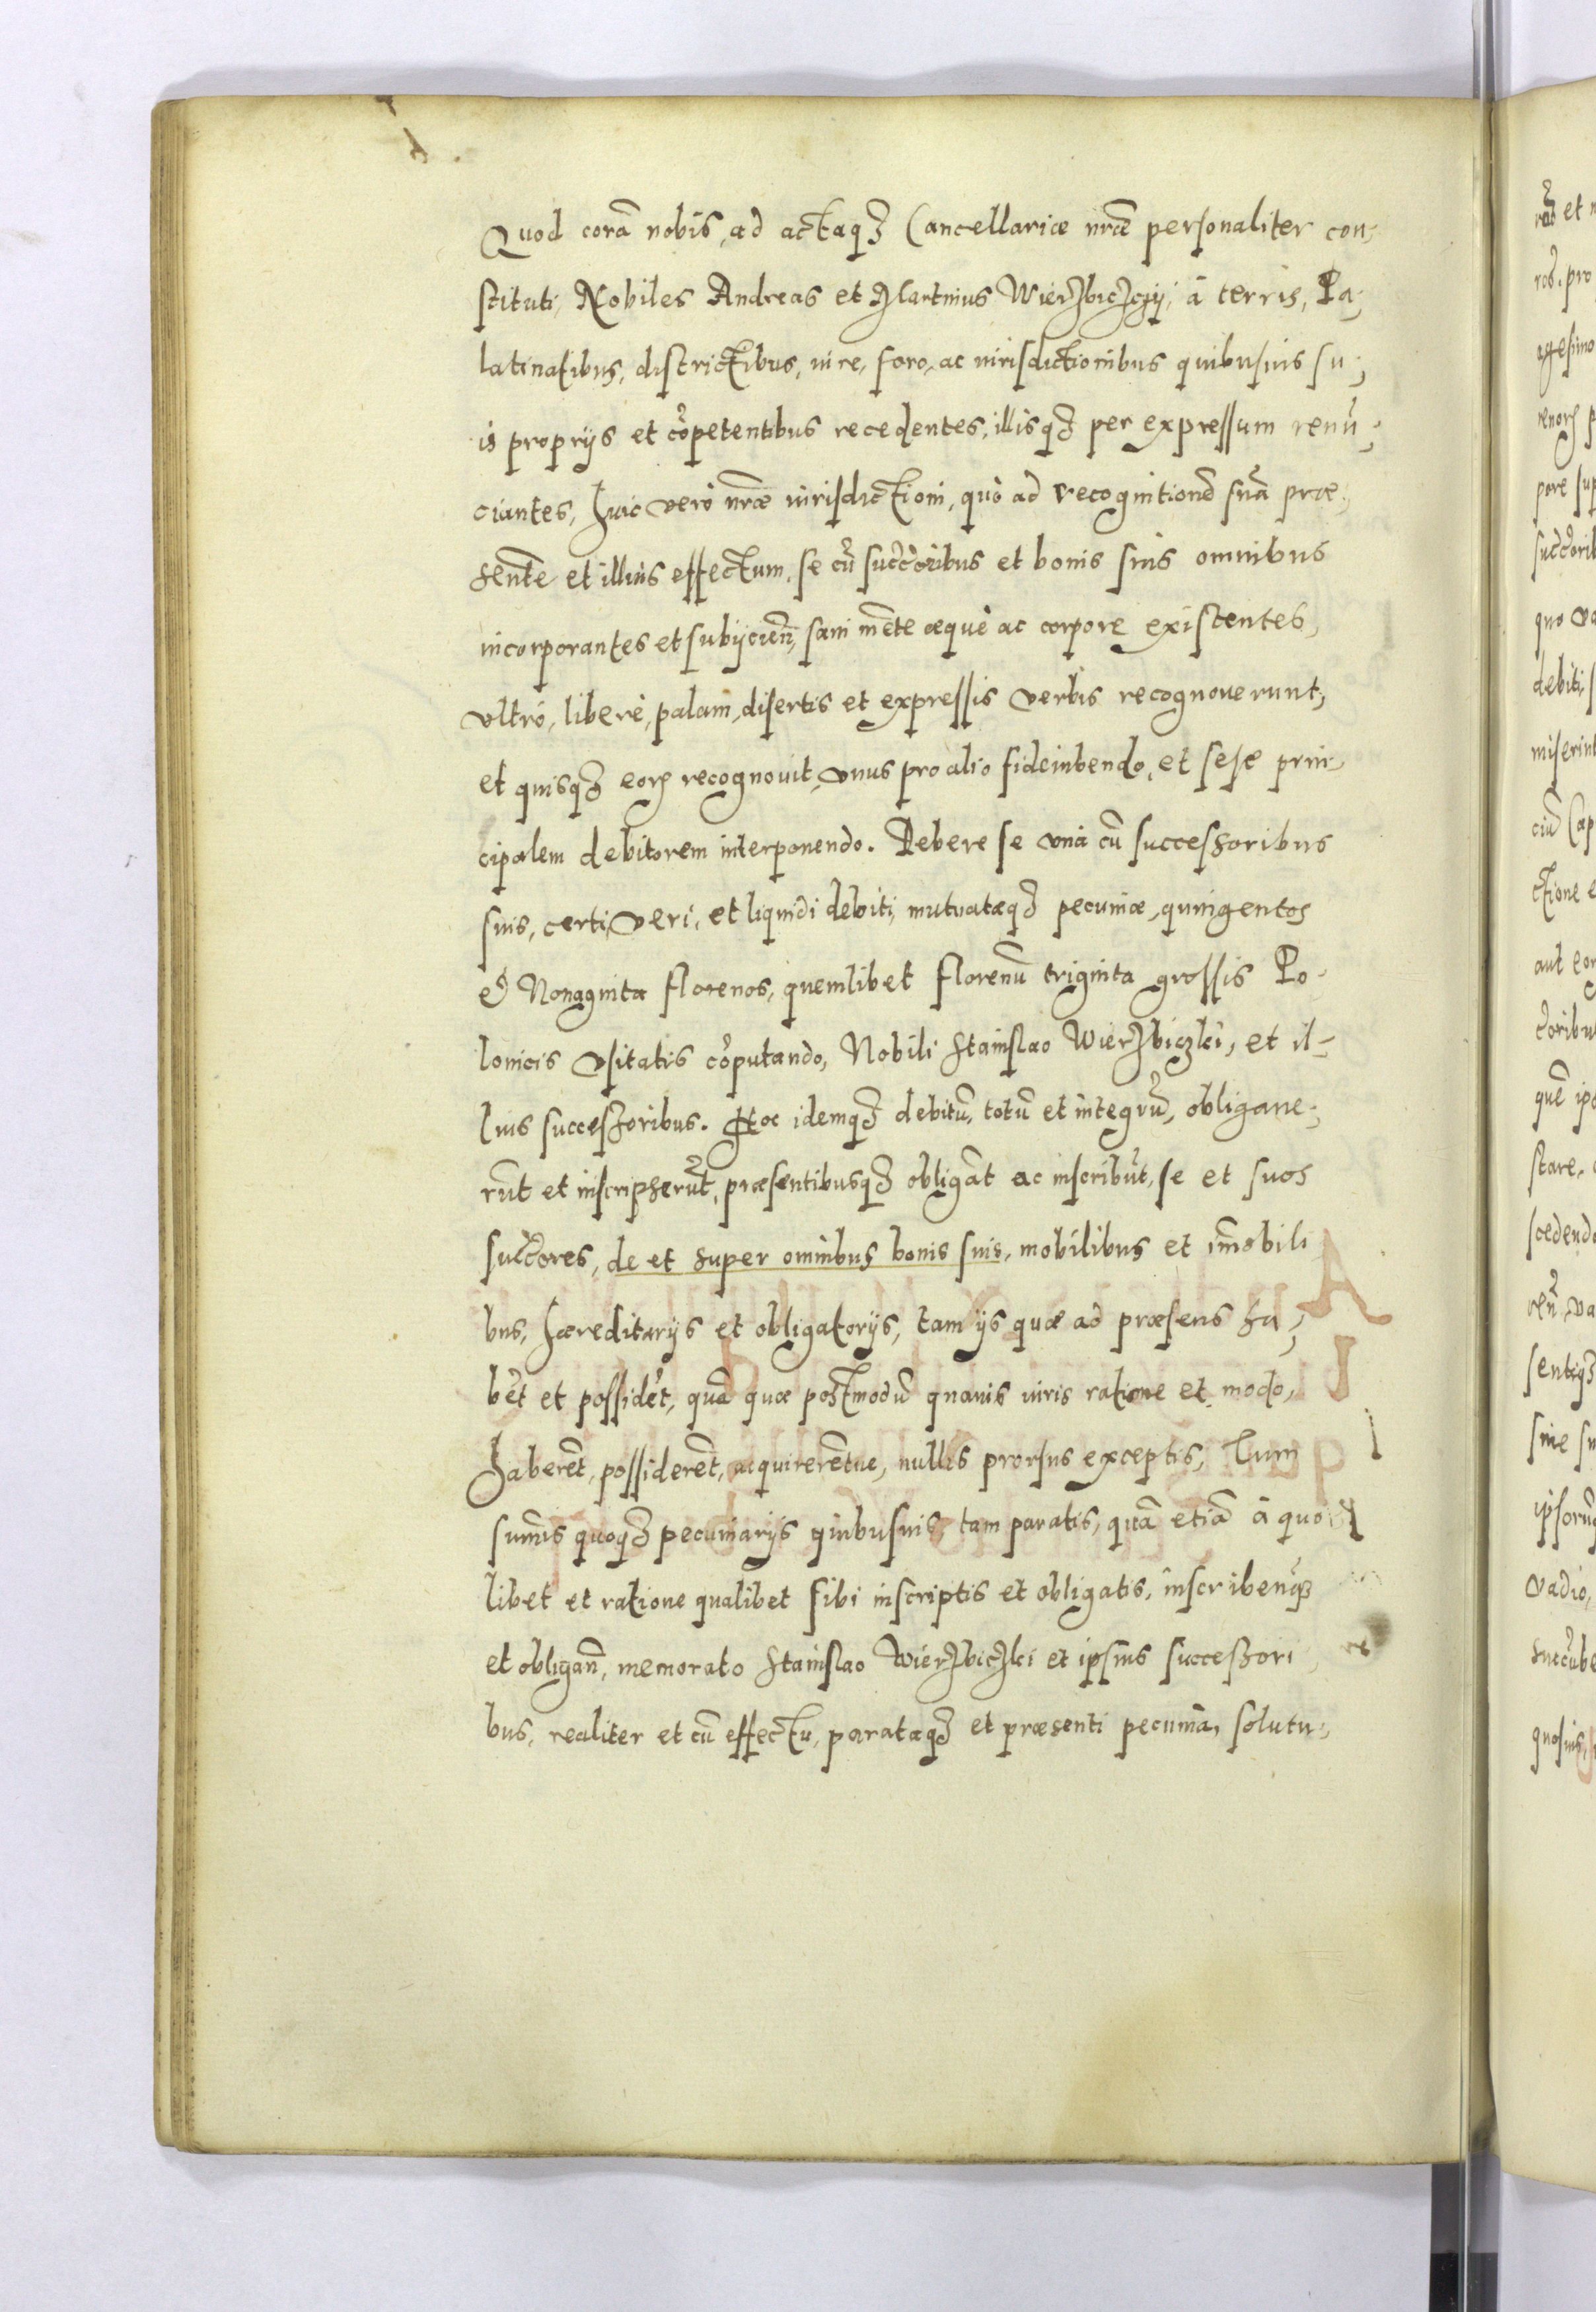 Quod corã nobis, ad actaqꝫ Cancellariæ nrãe personaliter con,
stituti, Nobiles Andreas et Martinus Wierzbiczcÿ, à terris, Pa,
latinatibus, districtibus, iure, foro, ac iurisdictionibus quibusuis su,
is proprijs et cõpetentibus recedentes, illisqꝫ per expressum renũ,
ciantes, huic verò nrãe iurisdictioni, quò ad recognitionẽ suã præ,
sentẽ et illius effectum, se cũ succõribus et bonis suis omnibus
incorporantes et subijcieñ, sani mẽte æquè ac corpore existentes,
vltrò, liberè, palam, disertis et expressis verbis recognouerunt,
et quisqꝫ eorꝝ recognovit, vnus pro alio fideiubendo, et sese prin,
cipalem debitorem interponendo. Debere se vnà cũ successoribus
suis, certi, veri, et liquidi debiti, mutuatæqꝫ pecuniæ, quingentos
& Nonaginta florenos, quemlibet florenũ triginta grossis Po,
lonicis vsitatis cõputando, Nobili Stanislao Wierzbiczki, et il,
lius successoribus. Hoc idemqꝫ debitũ, totũ et integrũ, obligaue,
rũt et inscripserũt, præsentibusqꝫ obligãt ac inscribũt, se et suos
succõres, de et super omnibus bonis suis, mobilibus et im̃obili
bus, hæreditarijs et obligatorijs, tam ijs quæ ad præsens ha,
bẽt et possidẽt, quã quæ postmodũ quauis iuris ratione et modo,
haberẽt, possiderẽt, acquirerẽtue, nullis prorsus exceptis, Tum
sum̃is quoqꝫ pecuniarijs quibusuis, tam paratis, quã etiã à quo
libet et ratione qualibet sibi inscriptis et obligatis, inscribeñqꝫ
et obligañ, memorato Stanislao Wierzbiczki et ipsius successori
bus, realiter et cũ effectu, parataqꝫ et præsenti pecunia, solutu,